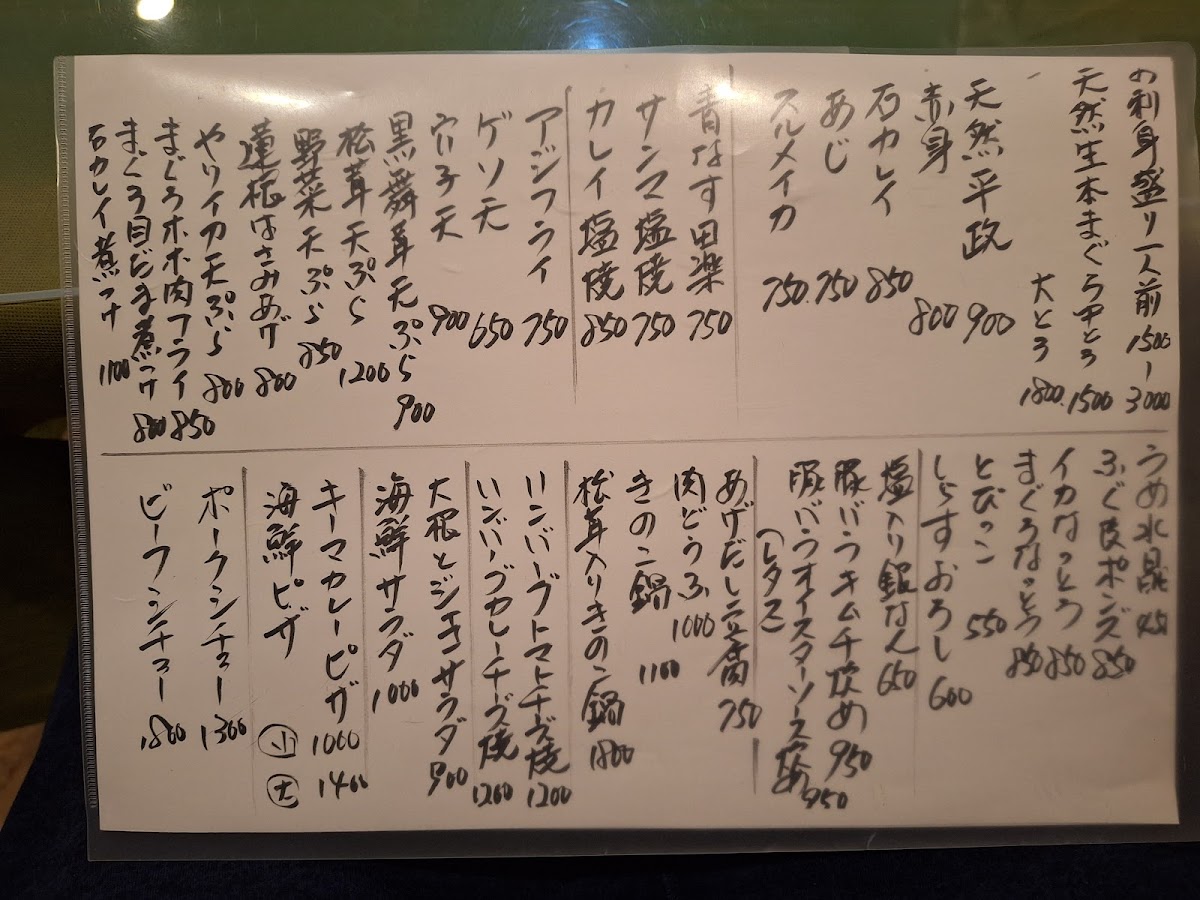 お刺身盛り一人前 1500〜3000
天然生本まぐろ中とろ 1500
大とろ 1800
天然平政 900
赤身 800
石カレイ 850
あじ 750
スルメイカ 750
青なす田楽 750
サンマ塩焼 750
カレイ塩焼 850
アジフライ 750
ゲソ天 650
穴子天 900
黒舞茸天ぷら 900
松茸天ぷら 1200
野菜天ぷら 850
蓮根はさみあげ 800
やりイカ天ぷら 800
まぐろホホ肉フライ 850
まぐろ目だま煮つけ 800
石カレイ煮つけ 1100
うめ水晶 450
ふぐ皮ポンズ 850
イカなっとう 850
まぐろなっとう 850
とびっこ 550
しらすおろし 600
塩入り銀なん 650
豚バラキムチ炒め 950
豚バラオイスターソース炒め 950
(レタス)
あげだし豆腐 750
肉どうふ 1000
きのこ鍋 1100
松茸入りきのこ鍋 1800
ハンバーグトマトチーズ焼 1200
ハンバーグカレーチーズ焼 1200
大根とジャコサラダ 900
海鮮サラダ 1000
キーマカレーピザ 1000 1400
海鮮ピザ 小 大
ポークシチュー 1300
ビーフシチュー 1800